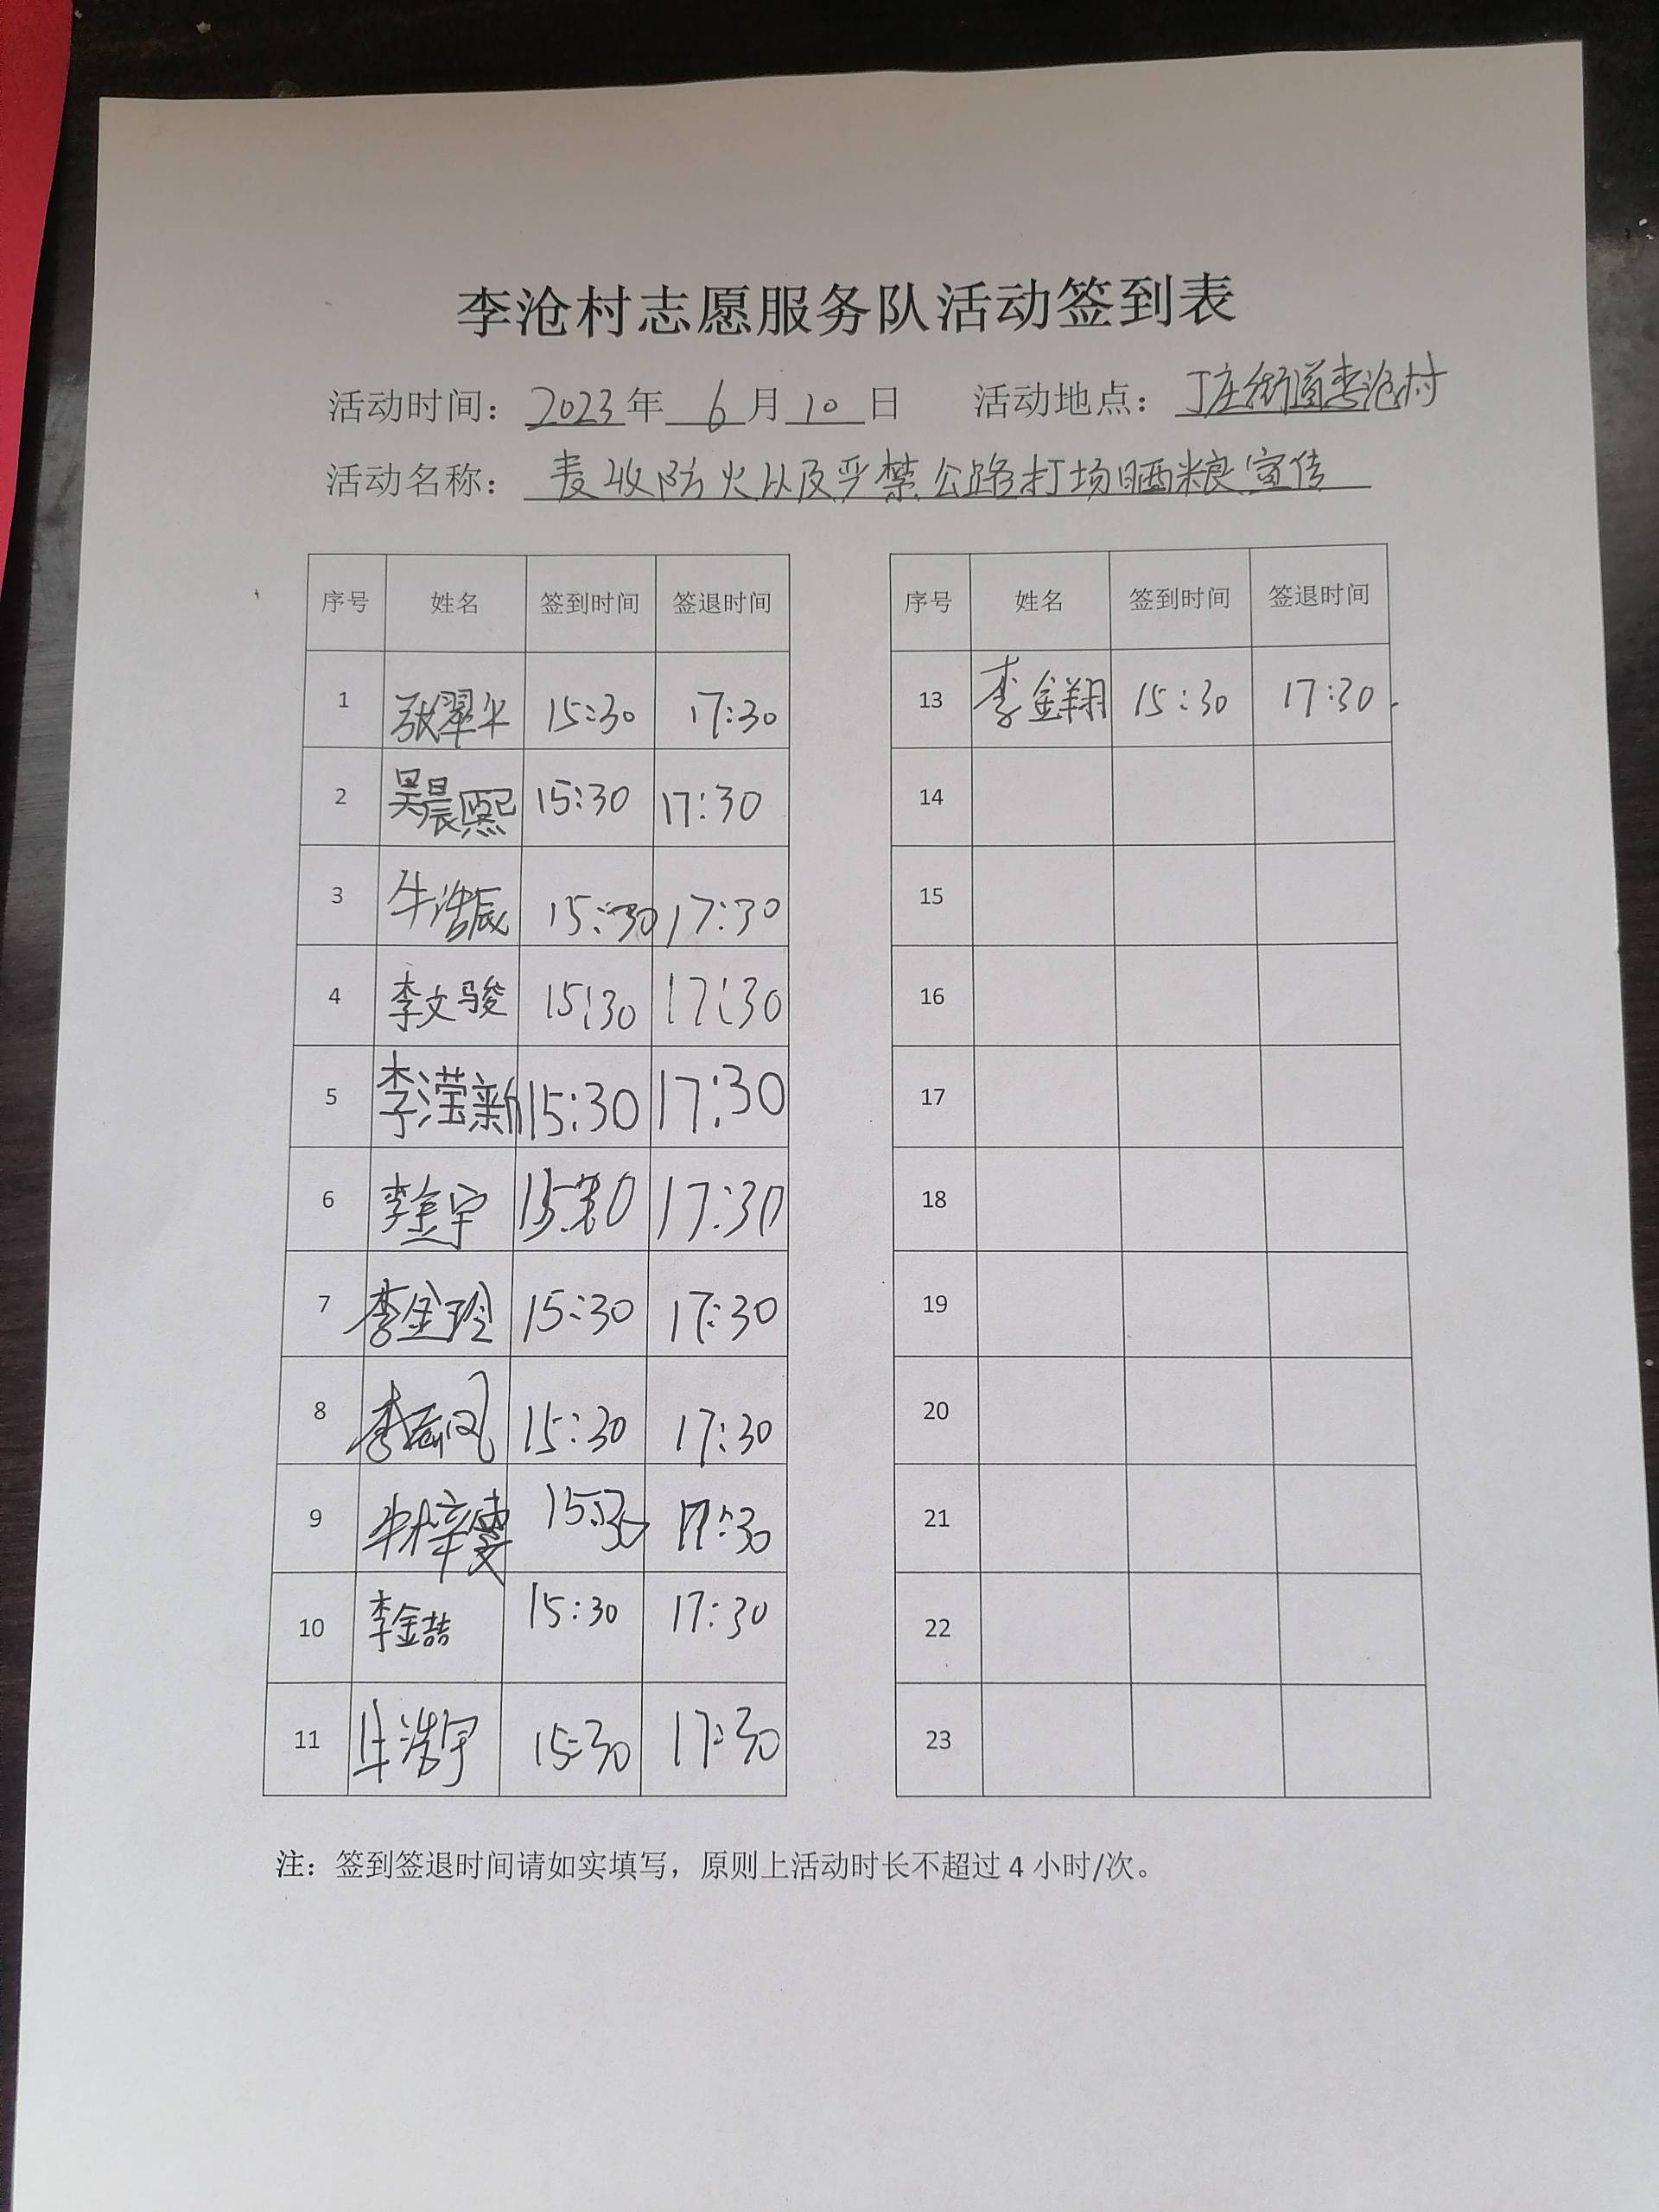 李沧村志愿服务队活动签到表
活动时间：2023年6月10日 活动地点：丁庄街道李沧村
活动名称：麦收防火以及严禁公路打场晒粮宣传
序号 姓名 签到时间 签退时间 序号 姓名 签到时间 签退时间
1 张翠平 15:30 17:30 13 李金翔 15:30 17:30
2 吴晨熙 15:30 17:30 14
3 牛浩辰 15:30 17:30 15
4 李文骏 15:30 17:30 16
5 李滢新 15:30 17:30 17
6 李金宇 15:30 17:30 18
7 李金玲 15:30 17:30 19
8 15:30 17:30 20
9 牛梓雯 15:30 17:30 21
10 李金喆 15:30 17:30 22
11 牛浩宇 15:30 17:30 23
注：签到签退时间请如实填写，原则上活动时长不超过4小时/次。